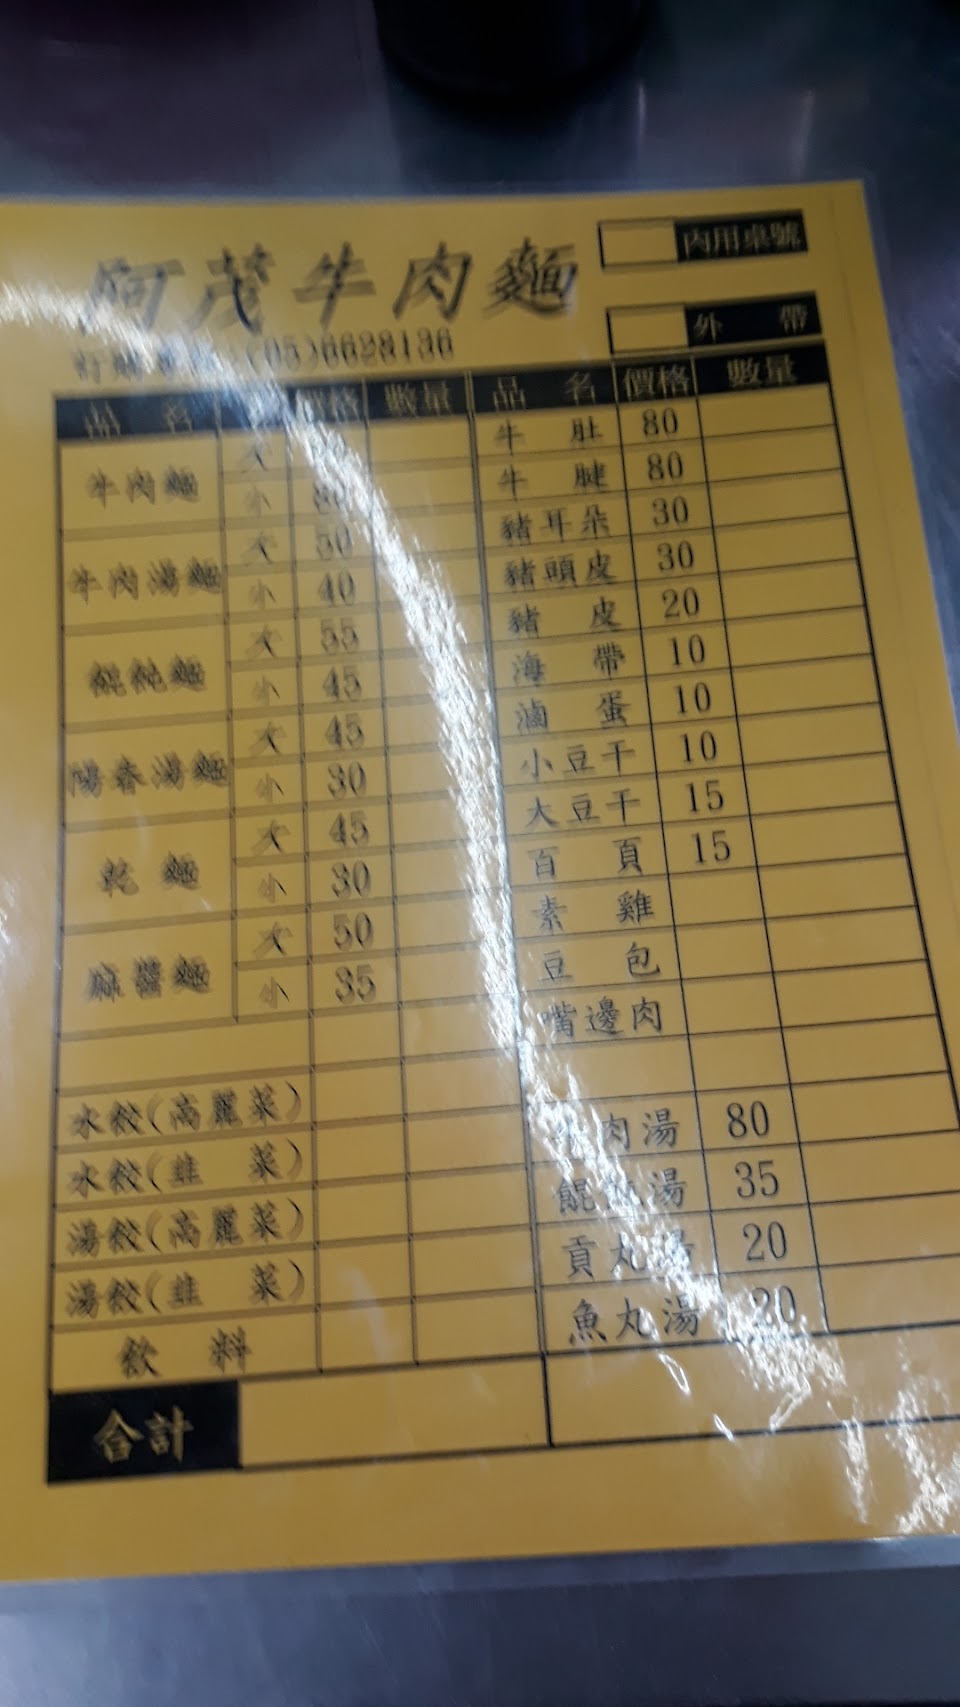 阿茂牛肉麵
內用桌號
外 帶
(05)6628136
品 名 價格 數量
品 名 價格 數量
牛肉麵 大
小 80
牛肉湯麵 大 50
小 40
餛飩麵 大 55
小 45
陽春湯麵 大 45
小 30
乾 麵 大 45
小 30
麻醬麵 大 50
小 35
水餃(高麗菜)
水餃(韭 菜)
湯餃(高麗菜)
湯餃(韭 菜)
飲 料
合計
牛 肚 80
牛 腱 80
豬耳朵 30
豬頭皮 30
豬 皮 20
海 帶 10
滷 蛋 10
小豆干 10
大豆干 15
百 頁 15
素 雞
豆 包
嘴邊肉
牛肉湯 80
餛飩湯 35
貢丸湯 20
魚丸湯 20